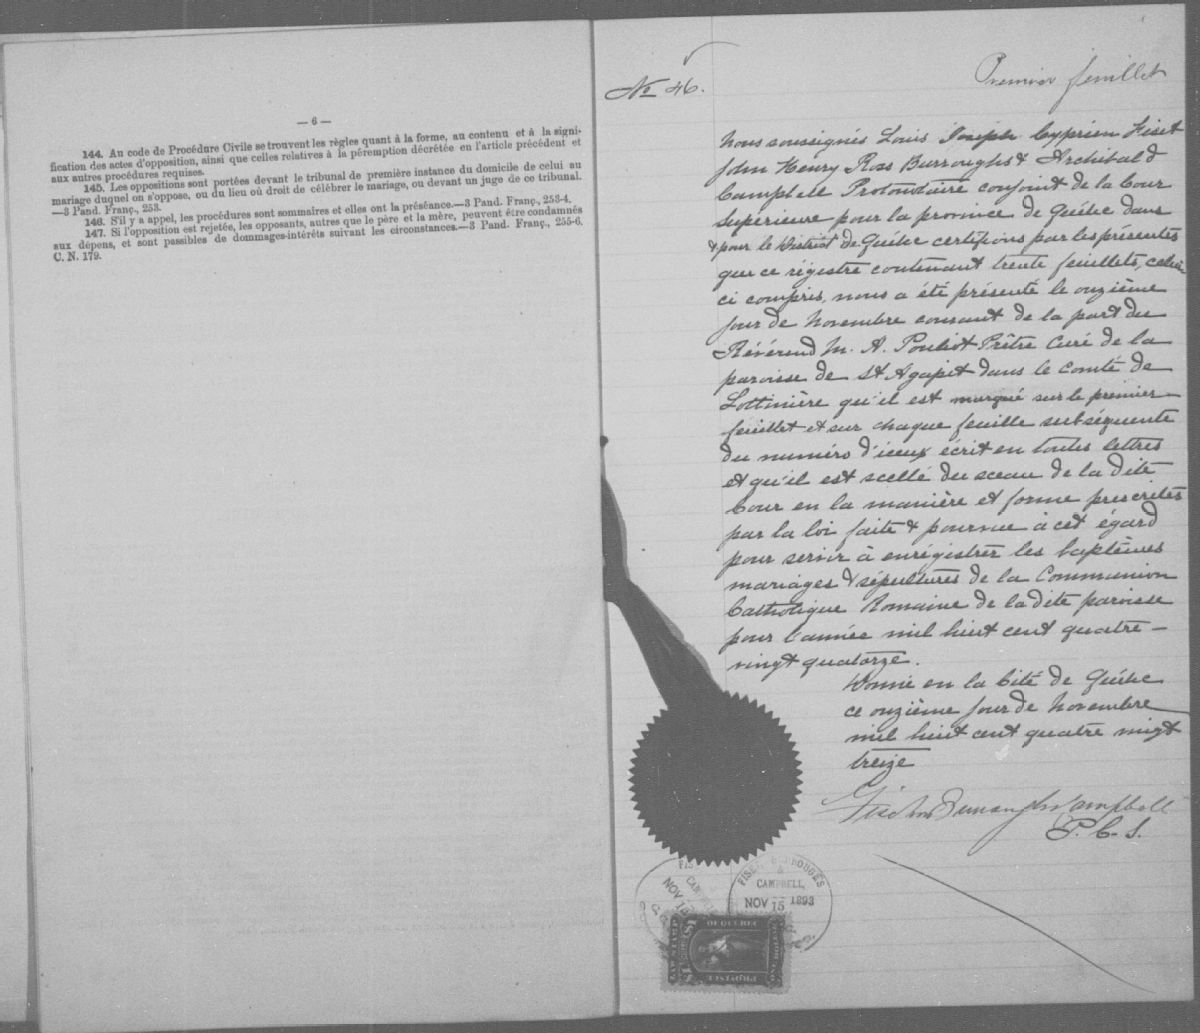 — 6 —
144. Au code de Procédure Civile se trouvent les règles quant à la forme, au contenu et à la signi-
fication des actes d'opposition, ainsi que celles relatives à la péremption décrétée en l'article précédent et
aux autres procédures requises.
145. Les oppositions sont portées devant le tribunal de première instance du domicile de celui au
mariage duquel on s'oppose, ou du lieu où droit de célébrer le mariage, ou devant un juge de ce tribunal.
—3 Pand. Franç., 253.
146. S'il y a appel, les procédures sont sommaires et elles ont la préséance.—3 Pand. Franç., 253-4.
147. Si l'opposition est rejetée, les opposants, autres que le père et la mère, peuvent être condamnés
aux dépens, et sont passibles de dommages-intérêts suivant les circonstances.—3 Pand. Franç., 255-6.
C. N. 179.
No 46.
Premier feuillet
Nous soussignés Louis Joseph Cyprien Fiset
John Henry Ross Burroughs & Archibald
Campbell Protonotaire conjoint de la Cour
Supérieure pour la province de Québec dans
& pour le District de Québec certifions par les présentes
que ce régistre contenant trente feuillets, celui
ci compris, nous a été présenté le onzième
jour de Novembre courant de la part du
Révérend M. A. Pouliot Prêtre Curé de la
paroisse de St Agapit dans le Comté de
Lotbinière qu'il est marqué sur le premier
feuillet et sur chaque feuille subséquente
du numéro d'iceux écrit en toutes lettres
et qu'il est scellé du sceau de la dite
Cour en la manière et forme prescrites
par la loi faite & pourvue à cet égard
pour servir à enrégistrer les baptêmes
mariages & sépultures de la Communion
Catholique Romaine de la dite paroisse
pour l'année mil huit cent quatre-
vingt quatorze.
Donné en la Cité de Québec
ce onzième jour de Novembre
mil huit cent quatre vingt
treize
Fiset Burroughs Campbell
P. C. S.
FISET, BURROUGHS
&
CAMPBELL,
NOV 15 1893
CAMPBELL
NOV 15